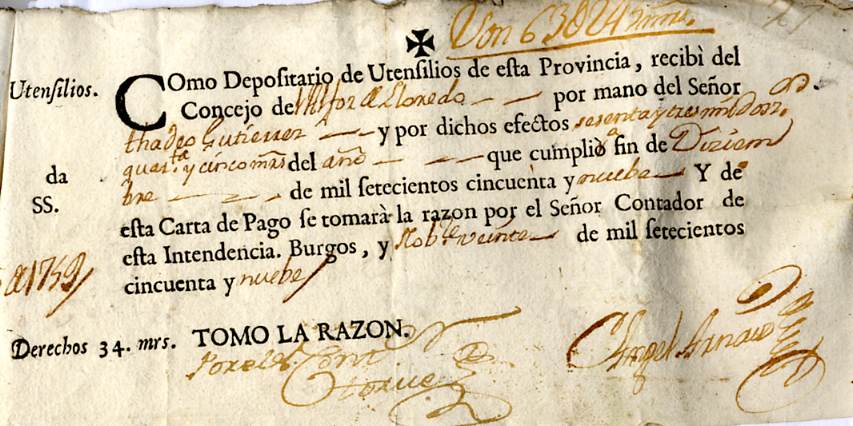 ✠ Von 638 mrs.
Utensilios. COmo Depositario de Utensilios de esta Provincia, recibì del
Concejo de por mano del Señor
thadeo Gutierrez y por dichos efectos sesenta y tres mil dosz.
da quar.ta y cinco mrs del año que cumpliò a fin de Diziem
SS. bre de mil setecientos cinquenta y nuebe Y de
esta Carta de Pago se tomarà la razon por el Señor Contador de
esta Intendencia. Burgos, y Nobre veinte de mil setecientos
de 1759 cinquenta y nuebe
Derechos 34. mrs. TOMO LA RAZON.
Angel Arnaiz